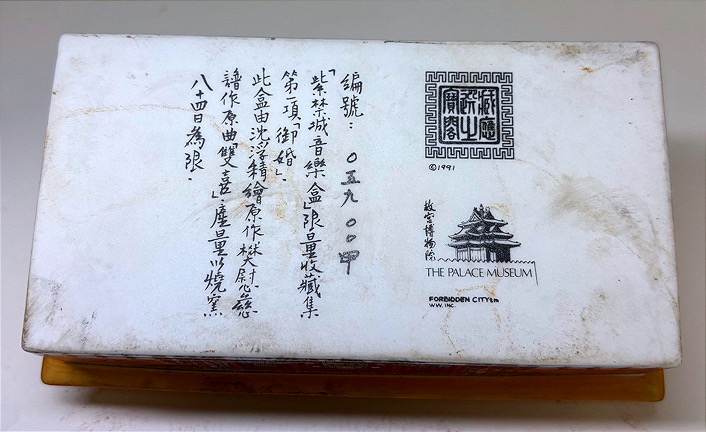 編號：〇五九〇〇甲
「紫禁城音樂盒」限量收藏集
第一項「御婚」．
此盒由沈浮精繪原作樊尉慈
譜作原曲「雙喜」．產量以燒窯
八十四日為限．
©1991
故宮博物院
THE PALACE MUSEUM
FORBIDDEN CITY tm
WW. INC.